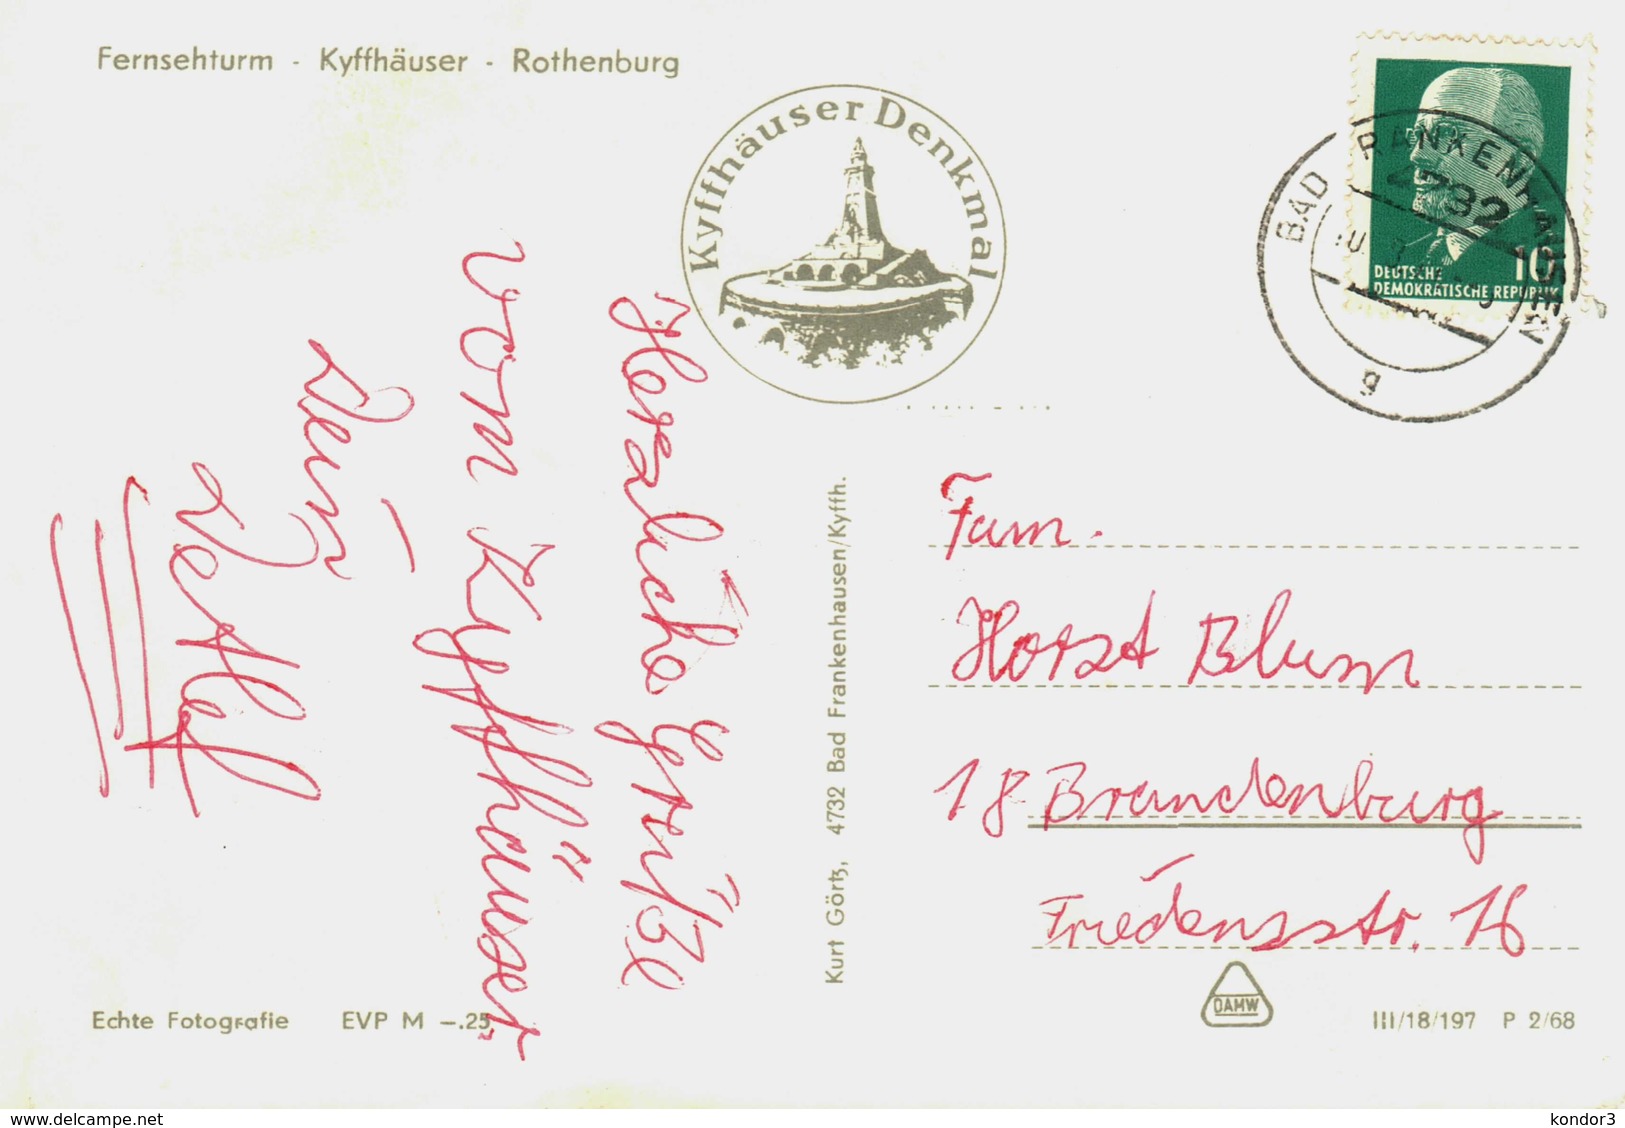 Fernsehturm - Kyffhäuser - Rothenburg
Kyffhäuser Denkmal
BAD FRANKENHAUSEN
4732
g
10
DEUTSCHE
DEMOKRATISCHE REPUBLIK
Herzliche Grüße
vom Kyffhäuser,
Dein
Detlef
Kurt Görtz, 4732 Bad Frankenhausen/Kyffh.
Fam.
Horst Blum
18 Brandenburg
Friedensstr. 16
Echte Fotografie EVP M –.25
DAMW
III/18/197 P 2/68
www.delcampe.net
kondor3